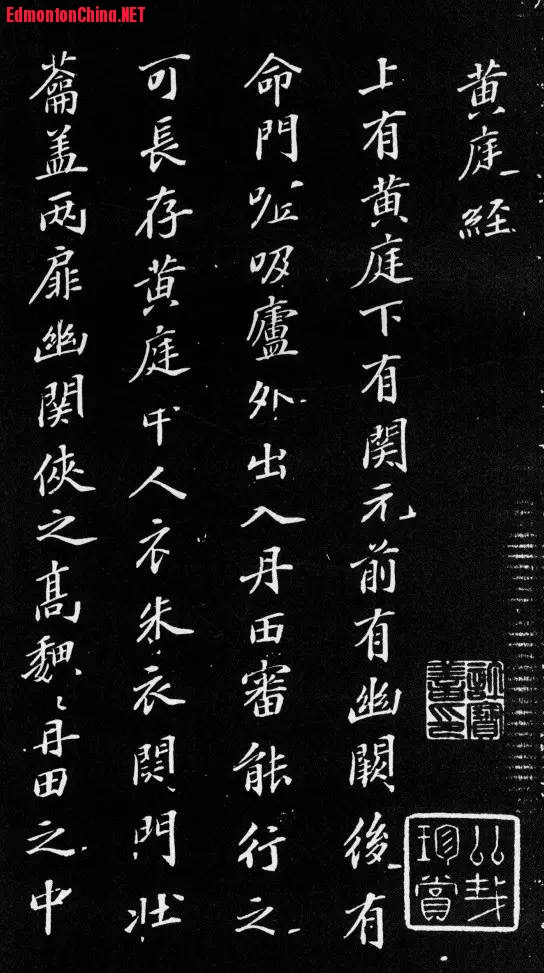 EdmontonChina.NET
黄庭経
上有黄庭下有関元前有幽闕後有
命門吸廬外出入丹田審能行之
可長存黄庭中人衣朱衣関門壮
蘥盖两扉幽関俠之髙魏〻丹田之中
珍賞